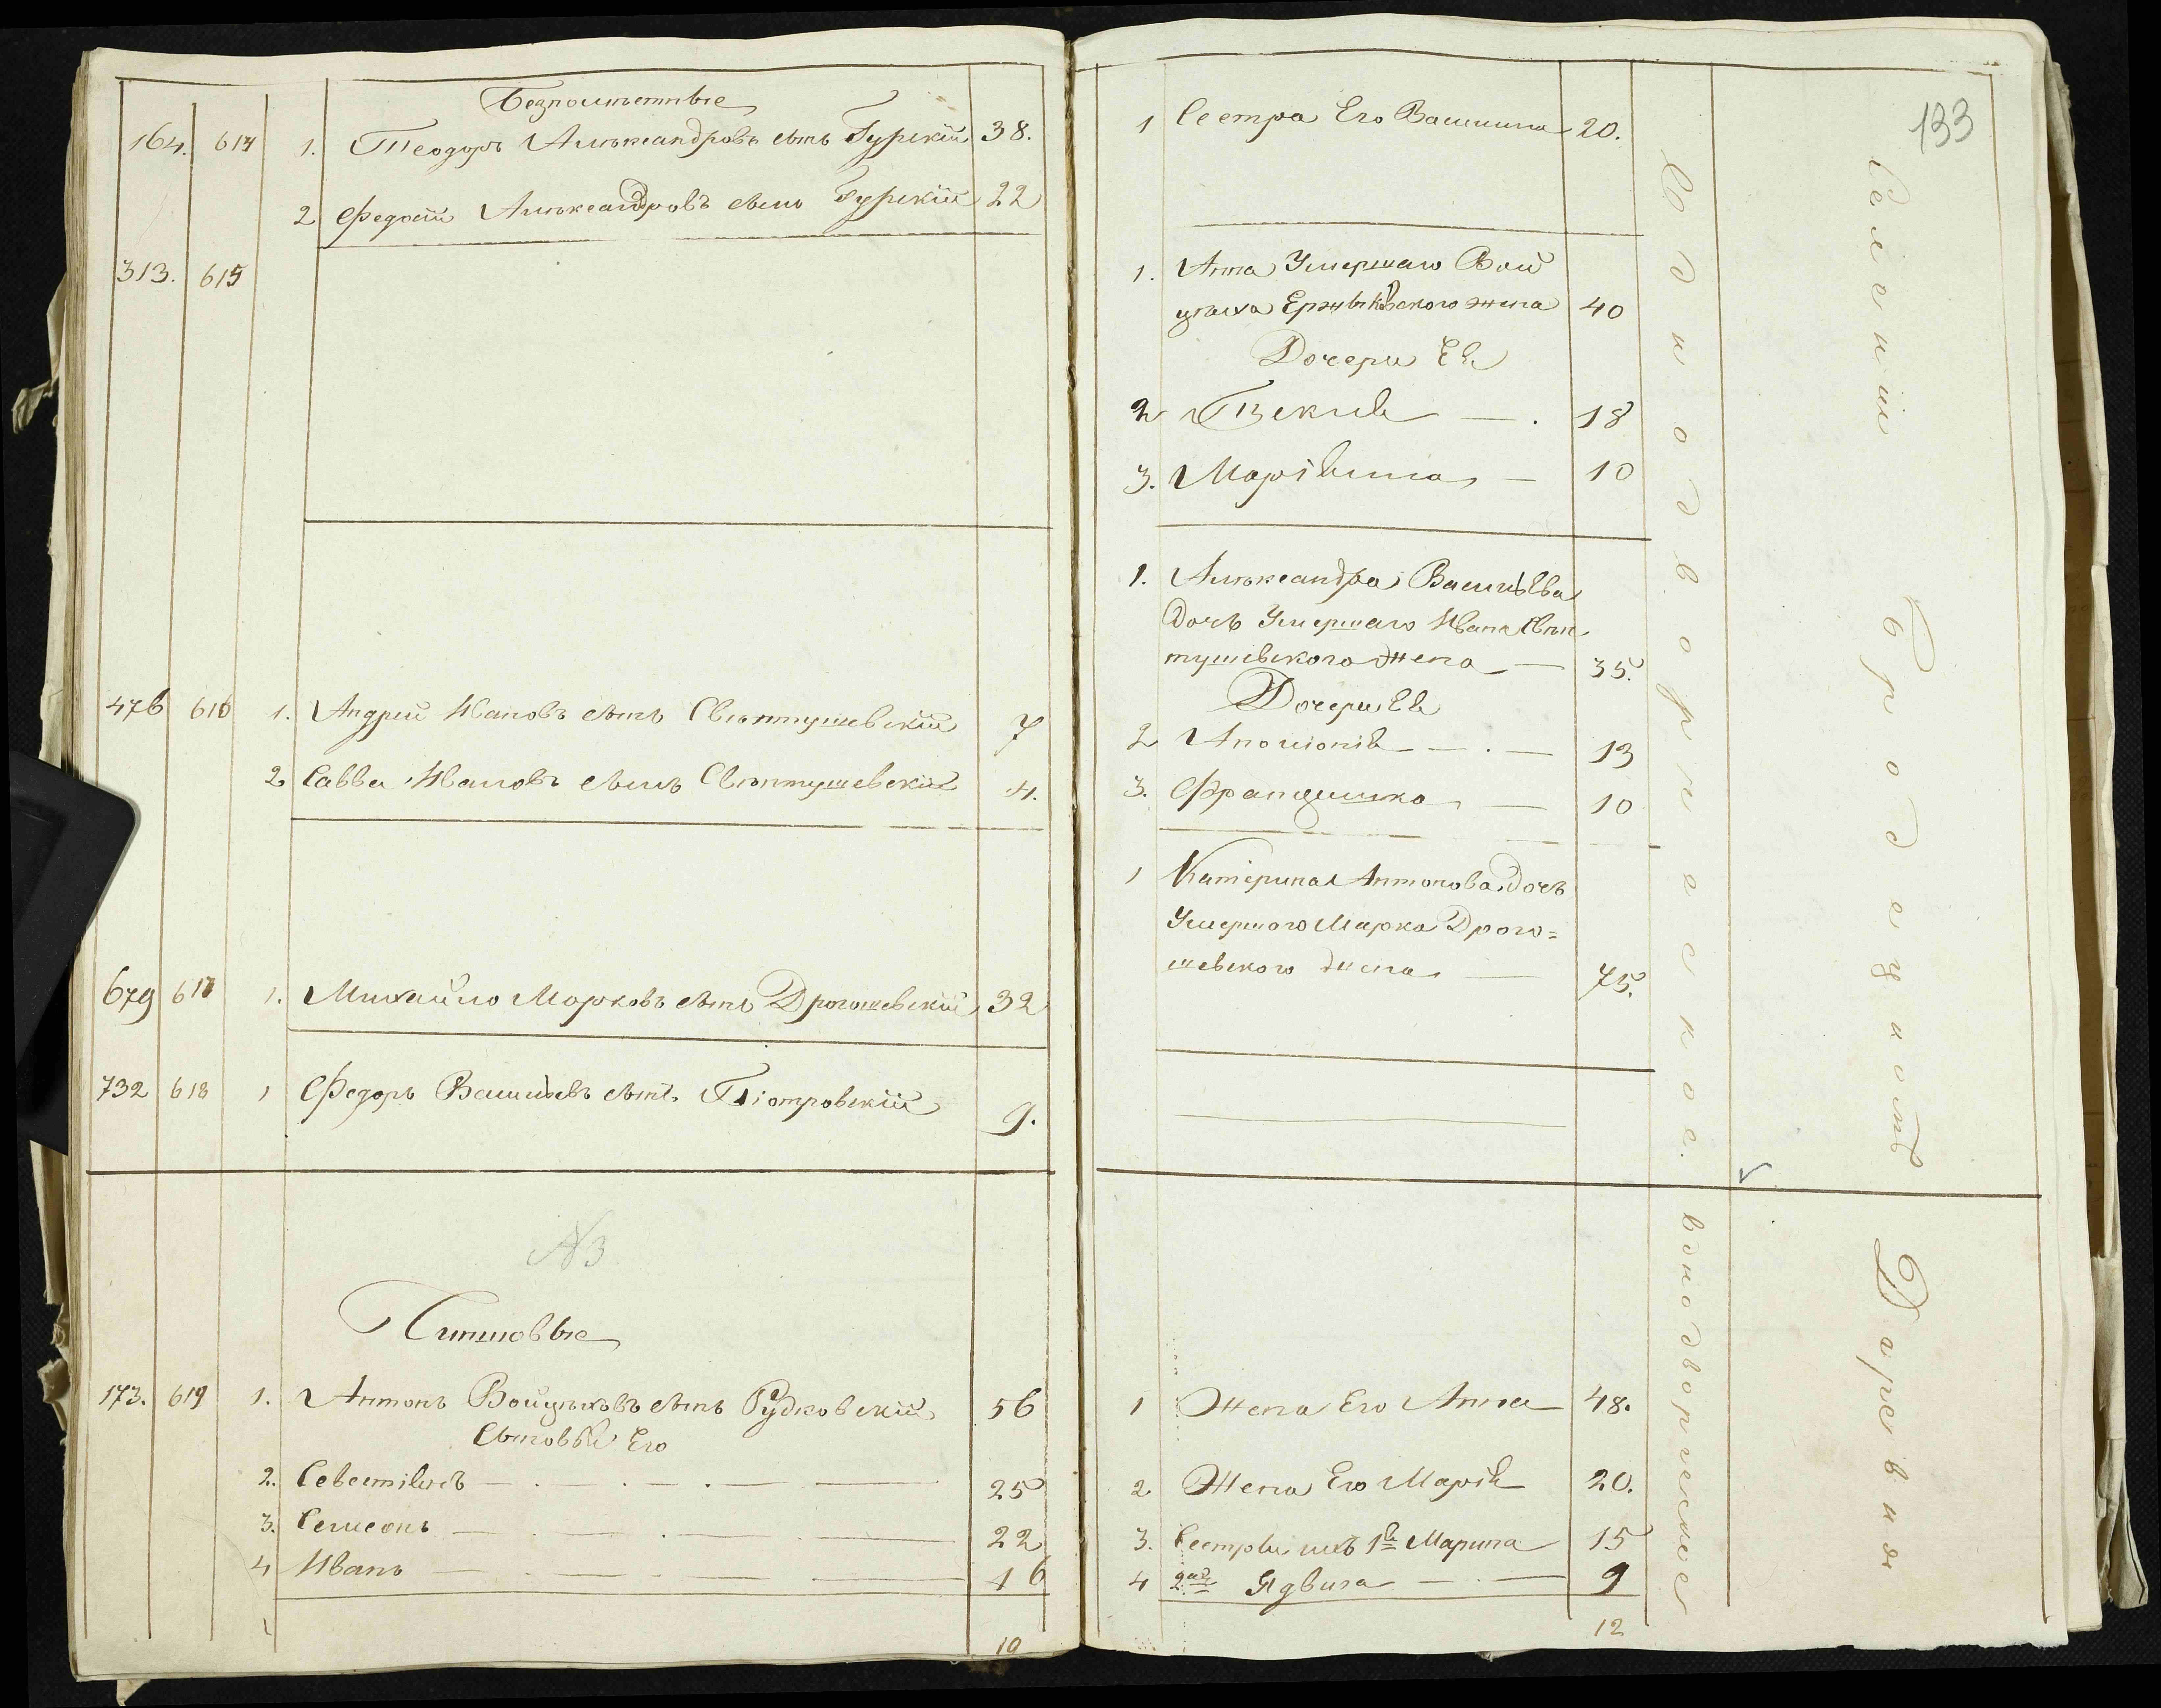 Безпоместные
164. 614 1. Теодоръ Александровъ сынъ Гурскій 38.
2 Федосій Александровъ сынъ Гурскій 22
313. 615
476 616 1. Андрей Ивановъ сынъ Свентушевскій 7
2 Савва Ивановъ сынъ Свентушевскій 4.
679 617 1. Михайло Марковъ сынъ Дрогошевскій 32
732 618 1 Федоръ Васильевъ сынъ Піотровскій 9.
№3
Чиншовые
173. 619 1. Антонъ Войцѣховъ сынъ Рудковскій 56
Сыновья Его
2. Севестіянъ 25
3. Семеонъ 22
4 Иванъ 16
10
133
1 Сестра Его Васишна 20.
1. Анна Умершаго Вой
цѣха Ержиковского жена 40
Дочери Ея
2 Текля 18
3. Маріянна 10
1. Александра Васильева
дочь Умершаго Ивана Свен
тушевского жена 35.
Дочери Ея
2 Аполонія 13
3. Францишка 10
1 Катерина Антонова дочь
Умершого Марка Дрого=
шевского жена 75.
1 Жена Его Анна 48.
2 Жена Его Марія 20.
3. Сестры ихъ 1я Марина 15
4 2ая Ядвига 9
12
Однодворческое.
Однодворческое
Селеніи
Бродецкомъ